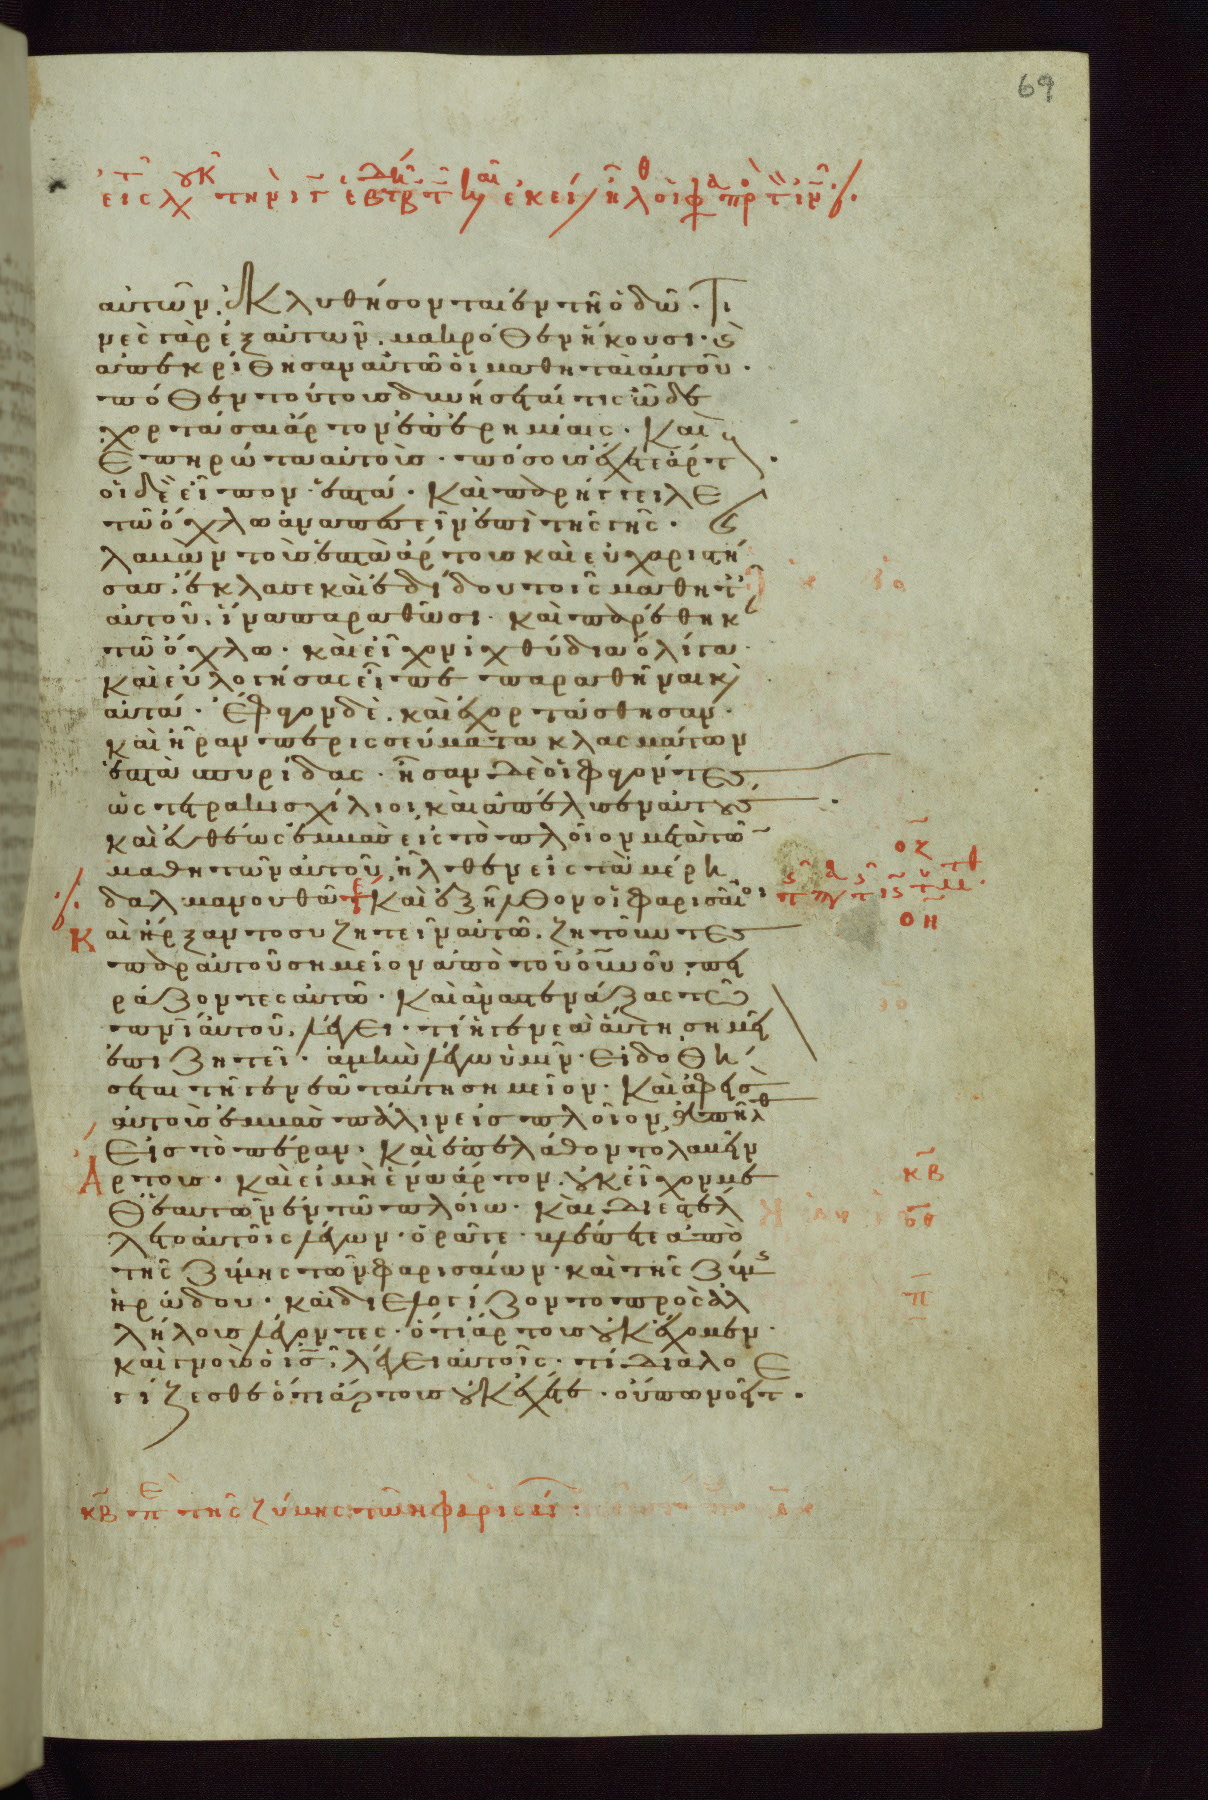 69
αὐτῶν, ἐκλυθήσονται ἐν τῆ ὁδῶ· Τι
νὲς γὰρ ἐξ αὐτῶν, μακρόθεν ἥκουσι· ϗ
ἀπεκρίθησαν αὐτῶ οἱ μαθηταὶ αὐτοῦ·
πόθεν τούτους δυνήσεταί τις ὧδε
χορτάσαι ἄρτον ἐπ ἐρημίαις· Καὶ
Ἐπηρώτα αὐτοὺς· πόσους ἔχετε ἄρτ
οἱ δὲ εἶπον· ἑπτά· Καὶ παρήγγειλε
τῶ ὄχλω ἀναπεσεῖν ἐπὶ τῆς γῆς· ϗ
λαβὼν τοὺς ἑπτὰ ἄρτους καὶ εὐχαριστή
σας, ἔκλασε καὶ ἐδίδου τοῖς μαθητ
αὐτοῦ, ἵνα παραθῶσι· καὶ παρέθηκ
τῶ ὄχλω· καὶ εἶχον ἰχθύδια ὀλίγα·
καὶ εὐλογήσας εἶπε παραθῆναι ϗ
αὐτά· Ἔφαγον δὲ, καὶ ἐχορτάσθησαν·
καὶ ἦραν περισσεύματα κλασμάτων
ἑπτὰ σπυρίδας· ἦσαν δὲ οἱ φαγόντες
ὡς τετρακισχίλιοι, καὶ ἀπέλυσεν αὐτοὺς·
καὶ εὐθέως ἐμβὰς εἰς τὸ πλοῖον μετὰ τῶ
οζ
μαθητῶν αὐτοῦ, ἦλθεν εἰς τὰ μέρη
δαλμανουθά Καὶ ἐξῆλθον οἱ φαρισαῖοι
οη
Καὶ ἤρξαντο συζητεῖν αὐτῶ, ζητοῦντες
παρ αὐτοῦ σημεῖον ἀπὸ τοῦ οὐνοῦ, πει
ράζοντες αὐτῶ· Καὶ ἀναστενάξας τῶ
πνι αὐτοῦ, λέγει· τί ἡ γενεὰ αὕτη σημεῖ
ἐπιζητεῖ· ἀμὴν λέγω ὑμῖν· Εἰ δοθή
σεται τῆ γενεᾶ ταύτη σημεῖον· Καὶ ἀφεὶς
αὐτοὺς ἐμβὰς πάλιν εἰς πλοῖον, ἀπῆλθ
Εἰς τὸ πέραν· Καὶ ἐπελάθοντο λαβεῖν
Ἄρτους· καὶ εἰ μὴ ἕνα ἄρτον, οὐκ εἶχον με κβ
θ ἑαυτῶν ἐν τῶ πλοίω· Καὶ διεστέλ οθ
λετο αὐτοῖς λέγων· ὁρᾶτε· βλέπετε ἀπὸ
τῆς ζύμης τῶν φαρισαίων· καὶ τῆς ζύμης
ἡρώδου· καὶ διελογίζοντο πρὸς ἀλ π
λήλους λέγοντες· ὅτι ἄρτους οὐκ ἔχομεν·
καὶ γνοὺς ὁ ις, λέγει αὐτοῖς· τί διαλο
γίζεσθε ὅτι ἄρτους οὐκ ἔχετε· οὔπω νοεῖτ·
κβ πε τῆς ζύμης τῶν φαρισαί